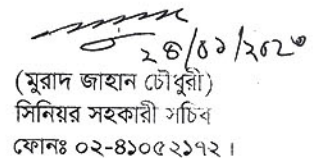 ২৪/০১/২০২৩
(মুরাদ জাহান চৌধুরী)
সিনিয়র সহকারী সচিব
ফোনঃ ০২-৪১০৫২১৭২।